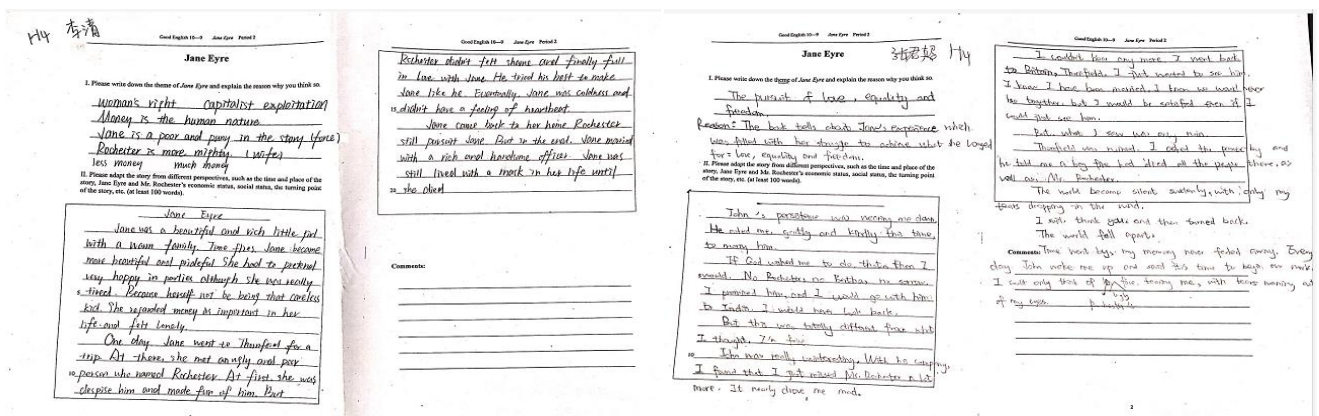 H4 李清
Good English 10—9 Jane Eyre Period 2
Jane Eyre
I. Please write down the theme of Jane Eyre and explain the reason why you think so.
Woman's right capitalist exploitation
Money is the human nature
Jane is a poor and puny in the story (force)
Rochester is more mighty. (wife)
less money much money
II. Please adapt the story from different perspectives, such as the time and place of the
story, Jane Eyre and Mr. Rochester's economic status, social status, the turning point
of the story, etc. (at least 100 words).
Jane Eyre
Jane was a beautiful and rich little girl
with a warm family. Time flies. Jane became
more beautiful and prideful. She had to pretend
very happy in parties although she was really
5 tired. Because herself not be bring that careless
kid. She regarded money as important in her
life and felt lonely.
One day Jane went to Thunfeid for a
trip. At there, she met an ugly and poor
10 person who named Rochester. At first, she was
despise him and made fun of him. But
Good English 10—9 Jane Eyre Period 2
Rochester didn't felt shame and finally full
in love with Jane. He tried his best to make
Jane like he. Eventually, Jane was coldness and
15 didn't have a feeling of heartbeat
Jane came back to her home Rochester
still pursuit Jane. But in the end, Jane married
with a rich and handsome officer. Jane was
still lived with a mask in her life until
20 she died
Comments:
Good English 10—9 Jane Eyre Period 2
Jane Eyre
H4
I. Please write down the theme of Jane Eyre and explain the reason why you think so.
The pursuit of love, equality and
freedom.
Reason: The book tells about Jane's experience which
was filled with her struggle to achieve what she longed
for: love, equality and freedom.
II. Please adapt the story from different perspectives, such as the time and place of the
story, Jane Eyre and Mr. Rochester's economic status, social status, the turning point
of the story, etc. (at least 100 words).
John's persistence was wearing me down.
He asked me, gently and kindly this time,
to marry him.
If God wanted me to do that, then I
would. No Rochester, no
I promised him, and I would go with him
to India. I would never look back.
But this was totally different from what
I thought.
10 John was really uninteresting. With his company,
I found that I just missed Mr. Rochester a lot
more. It nearly drove me mad.
Good English 10—9 Jane Eyre Period 2
I couldn't bear any more. I went back
to Britain, Thornfield. I just wanted to see him.
I know I have been married, I know we would never
be together, but I would be satisfied even if I
could just see him.
But what I saw was only ruin.
Thornfield was ruined. I asked the and
he told me a big fire had killed all the people there, as
well as Mr. Rochester.
The world became silent suddenly, with only my
tears dropping in the wind.
I said, thank you and then turned back.
The world fell apart.
Comments: Time went by, my memory never faded away. Every
day John woke me up and said it's time to begin our work.
I could only of fire, me, with tears
of my eyes.
2